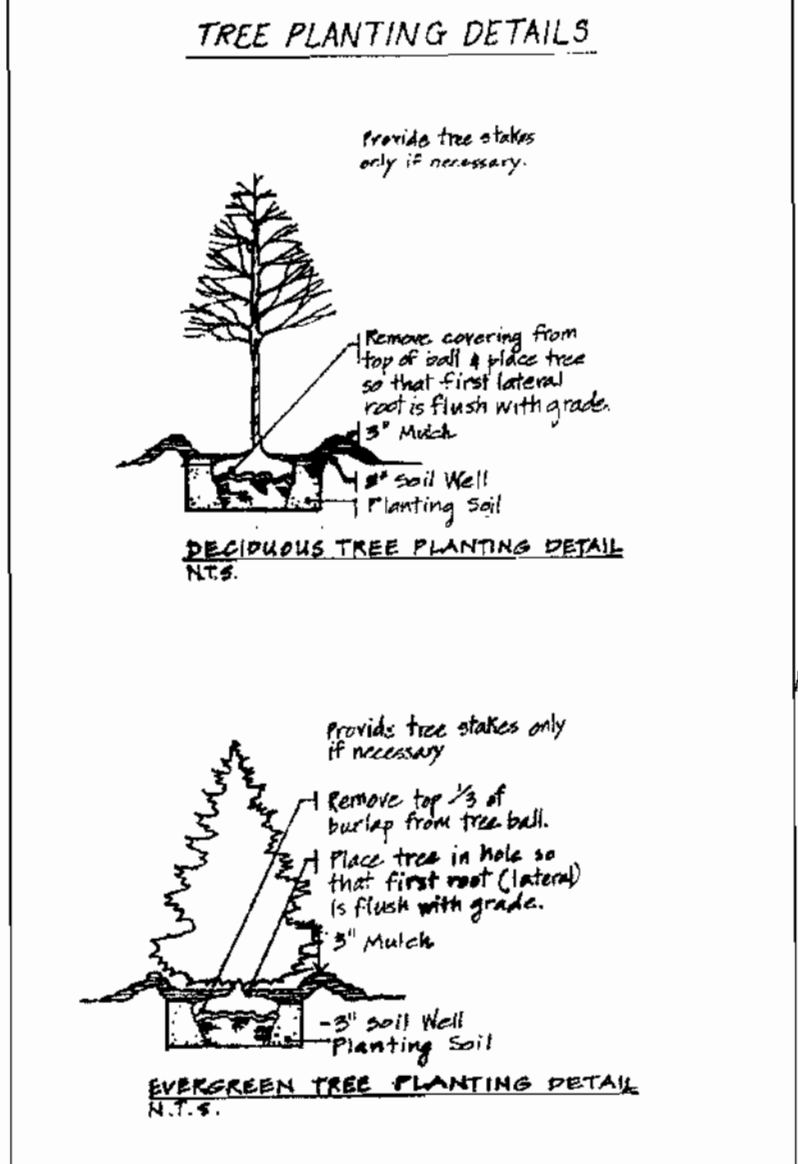 TREE PLANTING DETAILS
Provide tree stakes
only if necessary.
Remove covering from
top of ball & place tree
so that first lateral
root is flush with grade.
3" Mulch
Soil Well
Planting Soil
DECIDUOUS TREE PLANTING DETAIL
N.T.S.
Provide tree stakes only
if necessary
Remove top 1/3 of
burlap from tree ball.
Place tree in hole so
that first root (lateral)
is flush with grade.
3" Mulch
3" Soil Well
Planting Soil
EVERGREEN TREE PLANTING DETAIL
N.T.S.